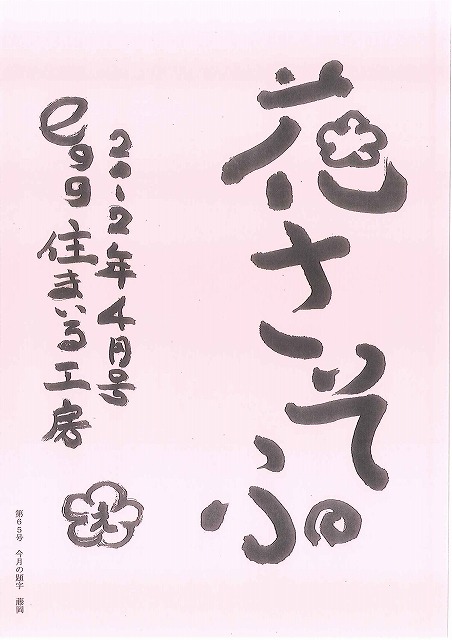 花さそふ
2012年4月号
egg住まいる工房
第65号 今月の題字 藤岡